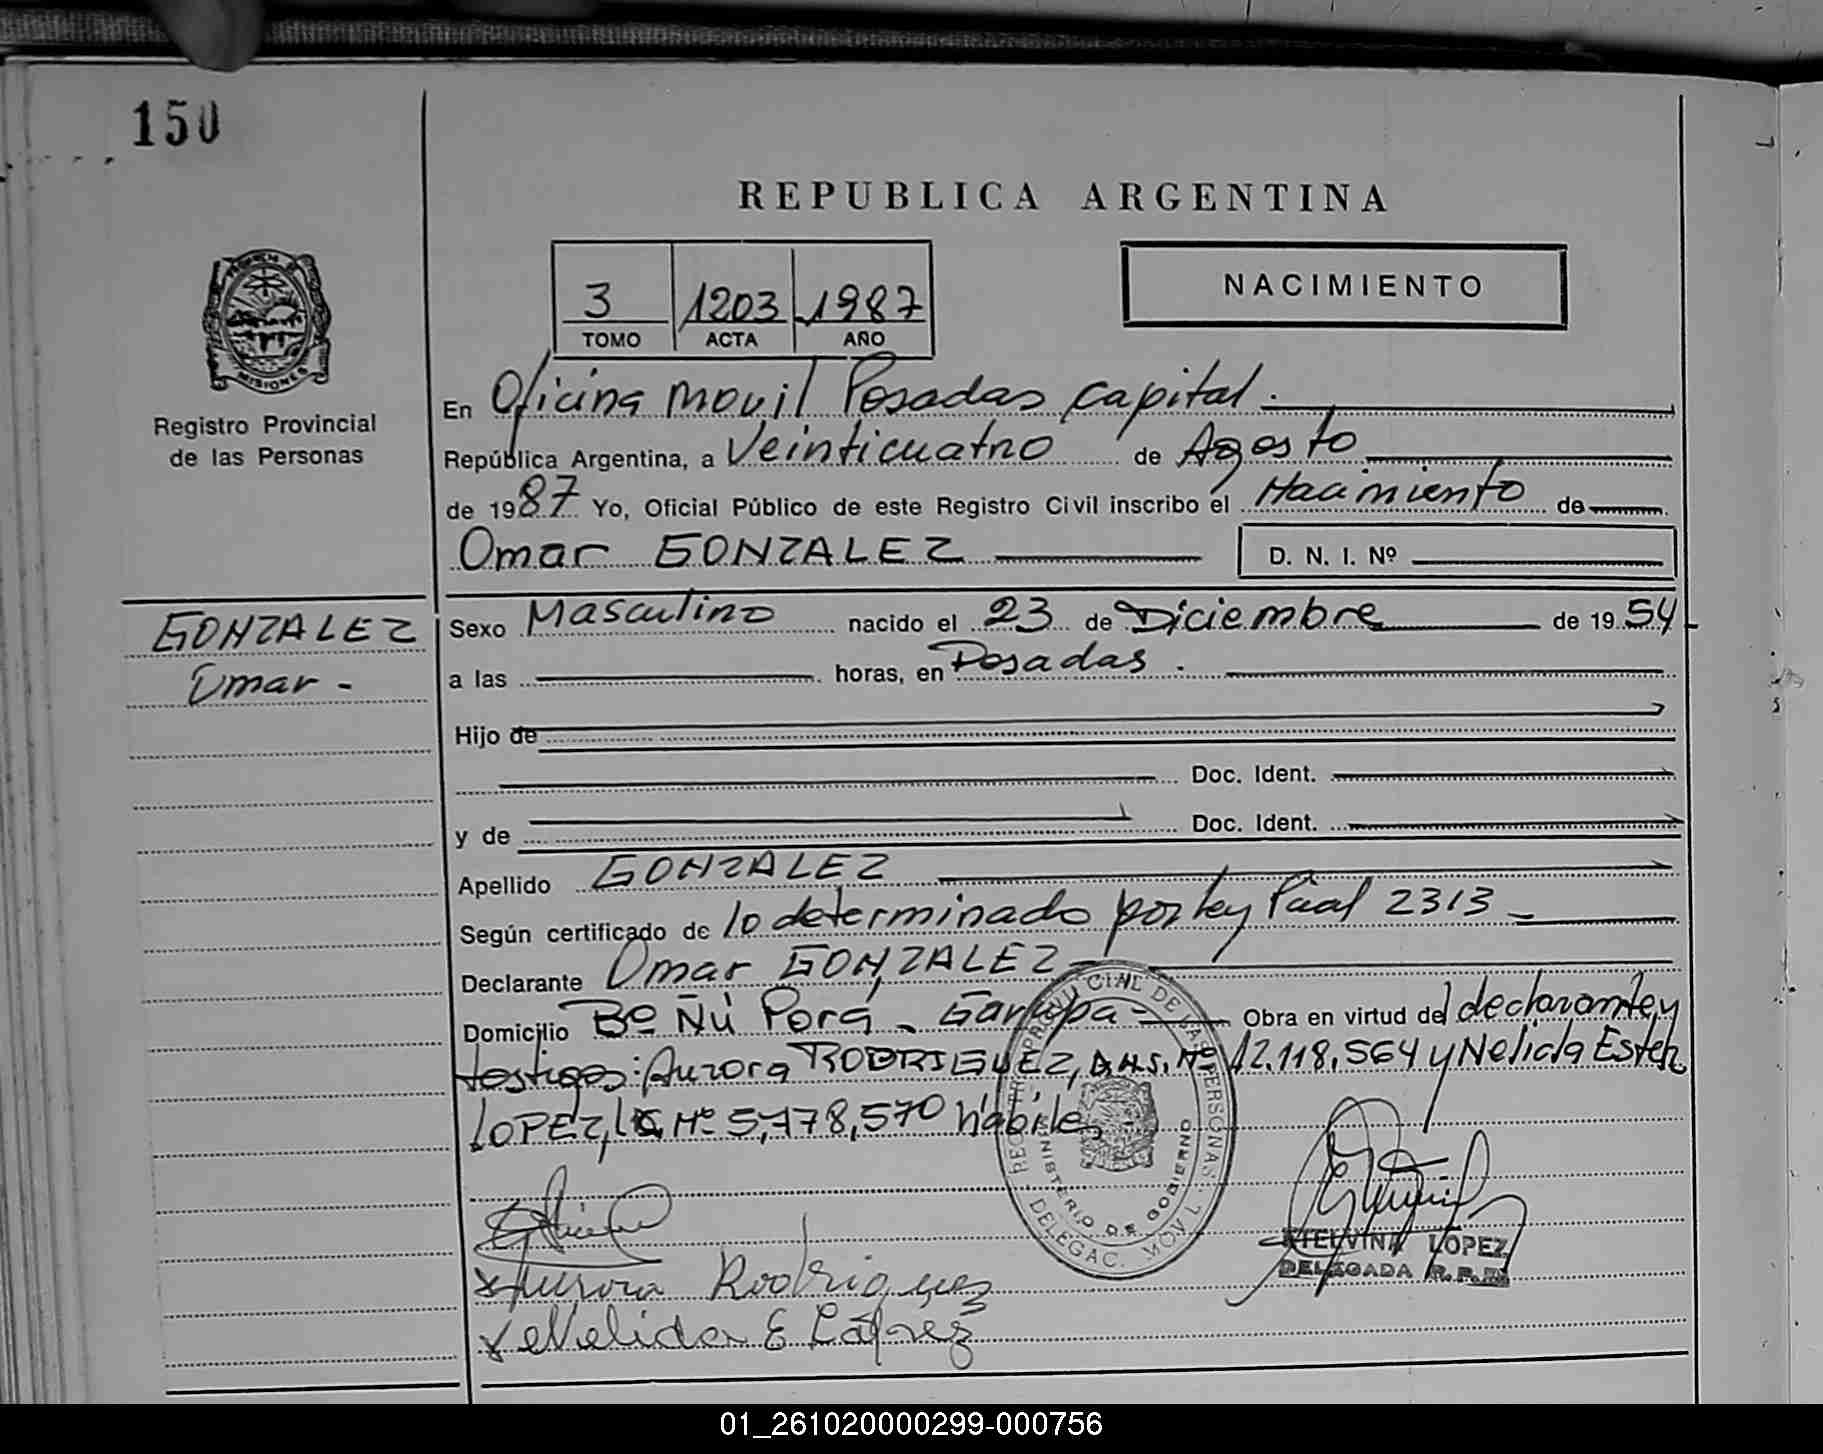 150
REPUBLICA ARGENTINA
3 1203 1987
TOMO ACTA AÑO
NACIMIENTO
MISIONES
Registro Provincial
de las Personas
En Oficina Movil Posadas Capital.
República Argentina, a Veinticuatro de Agosto
de 1987 Yo, Oficial Público de este Registro Civil inscribo el Nacimiento de
Omar GONZALEZ D. N. I. Nº
GONZALEZ
Omar -
Sexo Masculino nacido el 23 de Diciembre de 1954
a las horas, en Posadas.
Hijo de
Doc. Ident.
y de Doc. Ident.
Apellido GONZALEZ
Según certificado de lo determinado por ley Pcial 2313
Declarante Omar GONZALEZ
Domicilio Bº Ñú Porá - Garupa - Obra en virtud del declarante y
testigos: Aurora RODRIGUEZ, Nº 12.118,564 y Nelida Ester
LOPEZ, LC Nº 5,778,570 hábiles
REGISTRO PROVINCIAL DE LAS PERSONAS
MINISTERIO DE GOBIERNO
DELEGAC. MOVIL
Aurora Rodriguez
Nelida E López
ETELVINA LOPEZ
DELEGADA R.P.P.
01_261020000299-000756